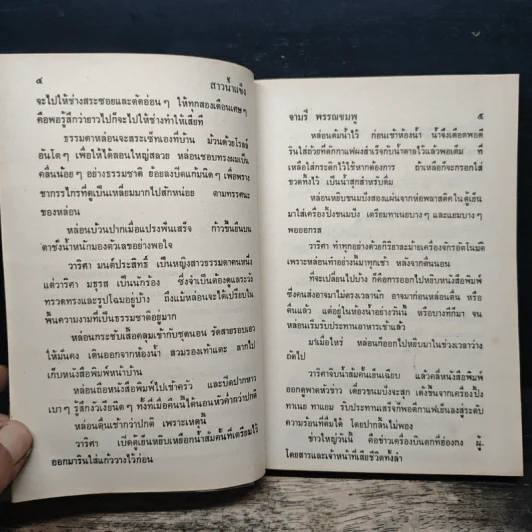 ๔ สาวน้ำแข็ง
จะไปให้ช่างสระซอยและดัดอ่อนๆ ให้ทุกสองเดือนเศษๆ
คือพอรู้สึกว่ายาวไปก็จะไปให้ช่างทำให้เสียที
ธรรมดาหล่อนจะสระเซ็ทเองที่บ้าน ม้วนด้วยโรลล์
อันโตๆ เพื่อให้ได้ลอนใหญ่สลวย หล่อนชอบทรงผมเป็น
คลื่นน้อยๆ อย่างธรรมชาติ ยองยีดงบีดแก้มนิดๆ เพื่อพราง
ขากรรไกรที่ดูเป็นเหลี่ยมมากไปสักหน่อย ตามทรรศนะ
ของหล่อน
หล่อนบ้วนปากเมื่อแปรงฟันเสร็จ ก้าวขึ้นยืนบน
ตาชั่งน้ำหนักมองตัวเลขอย่างพอใจ
วาริศา มนต์ประสิทธิ์ เป็นหญิงสาวธรรมดาคนหนึ่ง
แต่วาริศา มธุรส เป็นนักร้อง ซึ่งจำเป็นต้องดูแลระวัง
ทรวดทรงและรูปโฉมอยู่บ้าง ถึงแม้หล่อนจะได้เปรียบใน
พื้นความงามที่เป็นธรรมชาติอยู่มาก
หล่อนกระชับเสื้อคลุมเข้ากับชุดนอน รัดสายรอบเอว
ให้มั่นคง เดินออกจากห้องน้ำ สวมรองเท้าแตะ ลากไป
เก็บหนังสือพิมพ์หน้าบ้าน
หล่อนถือหนังสือพิมพ์ไปเข้าครัว และปิดปากหาว
เบาๆ รู้สึกง่วงเงียนิดๆ ทั้งที่เมื่อคืนนี้ได้นอนหัวค่ำกว่าปกติ
หล่อนตื่นเช้ากว่าปกติ เพราะเหตุนี้
วาริศา เปิดตู้เย็นหยิบเหยือกน้ำส้มคั้นที่เตรียมไว้
ออกมารินใส่แก้ววางไว้ก่อน
จามรี พรรณชมพู ๕
หล่อนต้มน้ำไว้ ก่อนเข้าห้องน้ำ น้ำจึงเดือดพอดี
รินใส่ถ้วยที่ตักกาแฟผงสำเร็จกับน้ำตาลไว้แล้วพอเต็ม ที่
เหลือใส่กระติกไว้ใช้หากต้องการ ถ้าเหลือก็จะกรอกใส่
ขวดทิ้งไว้ เป็นน้ำสุกสำหรับดื่ม
หล่อนหยิบขนมปังสองแผ่นจากห่อพลาสติคในตู้เย็น
มาใส่เครื่องปิ้งขนมปัง เตรียมทาเนยบางๆ และแยมบางๆ
พอออกรส
วาริศา ทำทุกอย่างด้วยกิริยาละม้ายเครื่องจักรอัตโนมัติ
เพราะหล่อนทำอย่างนี้มาทุกเช้า หลังจากตื่นนอน
ที่จะเปลี่ยนไปบ้าง ก็คือการออกไปหยิบหนังสือพิมพ์
ซึ่งคนส่งอาจมาไม่ตรงเวลานัก อาจมาก่อนหล่อนตื่น หรือ
ตื่นแล้ว แต่อยู่ในห้องน้ำอย่างวันนี้ หรือบางทีก็มา จน
หล่อนเริ่มรับประทานอาหารเช้าแล้ว
มาเมื่อไหร่ หล่อนก็ออกไปหยิบมาในช่วงเวลาว่าง
ถัดไป
วาริศาจิบน้ำส้มคั้นเย็นเฉียบ แล้วคลี่หนังสือพิมพ์
ออกดูพาดหัวข่าว เดี๋ยวขนมปังจะสุก เด้งขึ้นจากเครื่องปิ้ง
ทาเนย ทาแยม รับประทานเสร็จก็พอดีกาแฟเย็นลงสู่ระดับ
ความร้อนที่ดื่มได้ โดยปากลิ้นไม่พอง
ข่าวใหญ่วันนี้ คือข่าวเครื่องบินตกที่ฮ่องกง ผู้-
โดยสารและเจ้าหน้าที่เสียชีวิตทั้งลำ